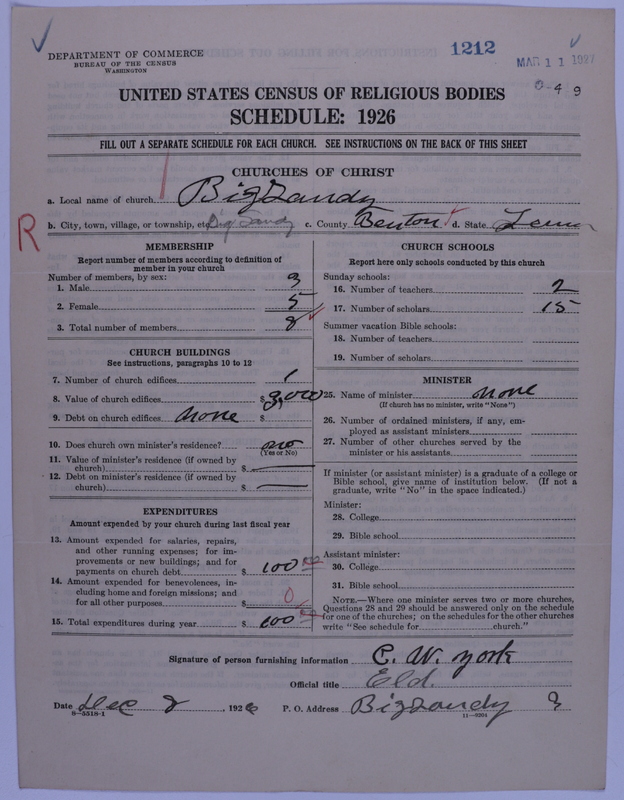 1212
MAR 11 1927
DEPARTMENT OF COMMERCE
BUREAU OF THE CENSUS
WASHINGTON
0-4 9
UNITED STATES CENSUS OF RELIGIOUS BODIES
SCHEDULE: 1926
FILL OUT A SEPARATE SCHEDULE FOR EACH CHURCH. SEE INSTRUCTIONS ON THE BACK OF THIS SHEET
CHURCHES OF CHRIST
a. Local name of church Big Sandy
R b. City, town, village, or township, etc. Big Sandy c. County Benton d. State Tenn
MEMBERSHIP
Report number of members according to definition of member in your church
Number of members, by sex:
1. Male 3
2. Female 5
3. Total number of members 8
CHURCH BUILDINGS
See instructions, paragraphs 10 to 12
7. Number of church edifices 1
8. Value of church edifices $ 3,000
9. Debt on church edifices none
10. Does church own minister's residence? no
(Yes or No)
11. Value of minister's residence (if owned by
church) $
12. Debt on minister's residence (if owned by
church) $
EXPENDITURES
Amount expended by your church during last fiscal year
13. Amount expended for salaries, repairs,
and other running expenses; for im-
provements or new buildings; and for
payments on church debt $ 100 00
14. Amount expended for benevolences, in-
cluding home and foreign missions; and
for all other purposes $ 0
15. Total expenditures during year $ 100 00
CHURCH SCHOOLS
Report here only schools conducted by this church
Sunday schools:
16. Number of teachers 2
17. Number of scholars 15
Summer vacation Bible schools:
18. Number of teachers
19. Number of scholars
MINISTER
25. Name of minister none
(If church has no minister, write "None")
26. Number of ordained ministers, if any, em-
ployed as assistant ministers
27. Number of other churches served by the
minister or his assistants
If minister (or assistant minister) is a graduate of a college or
Bible school, give name of institution below. (If not a
graduate, write "No" in the space indicated.)
Minister:
28. College
29. Bible school
Assistant minister:
30. College
31. Bible school
NOTE.—Where one minister serves two or more churches,
Questions 28 and 29 should be answered only on the schedule
for one of the churches; on the schedules for the other churches
write "See schedule for church."
Signature of person furnishing information C. W. York
Official title Eld.
Date Dec 2, 1926 P. O. Address Big Sandy
8-5518-1 11-9204